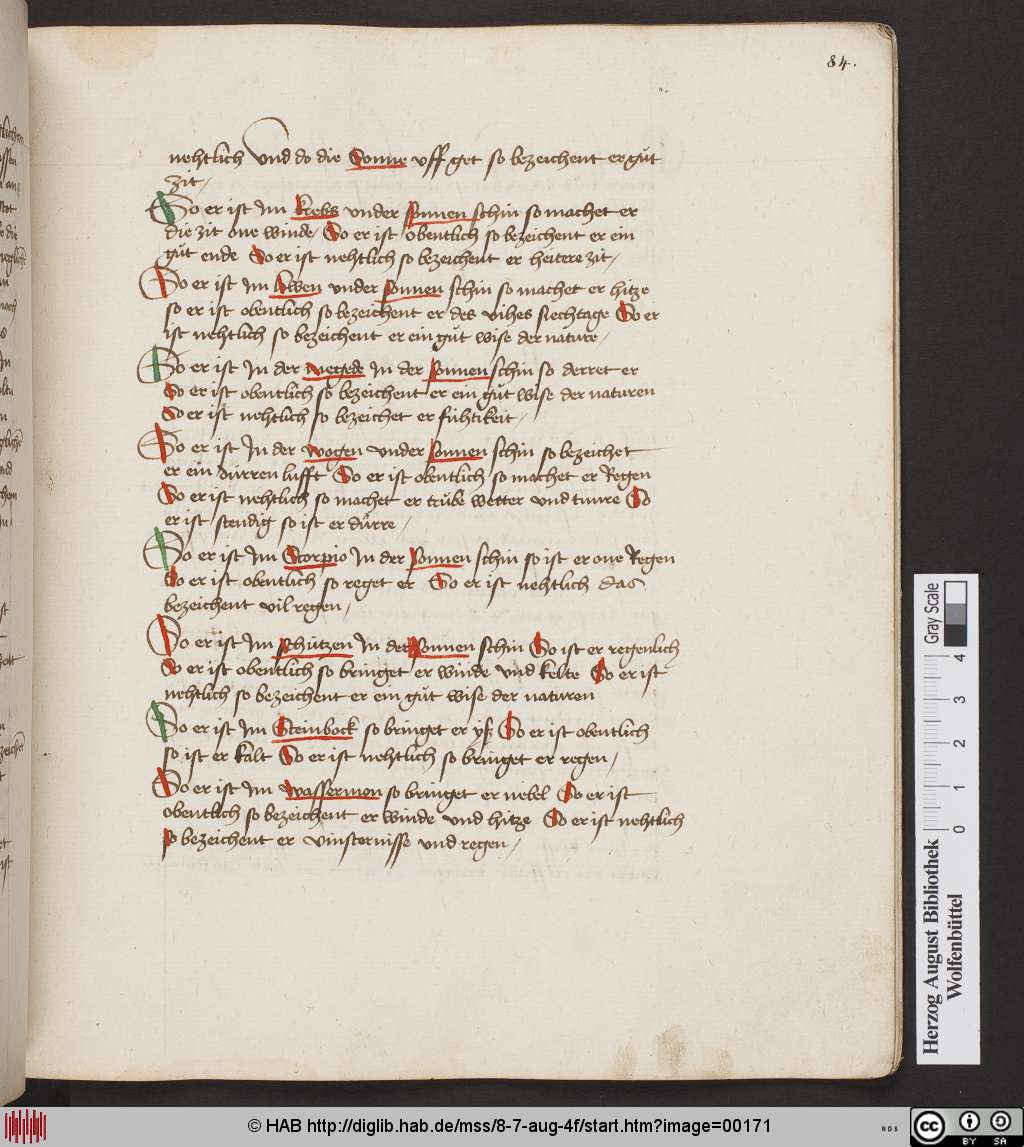 84.
nehtlich Vnd do die Sonne vff get so bezeichent er gůt
zit /
So er ist Im krebs vnder sonnen schin so machet er
die zit one winde / So er ist obentlich so bezeichent er ein
gůt ende So er ist nehtlich so bezeichent er heitere zit /
So er ist Im löwen vnder sonnen schin so machet er hitze
so er ist obentlich so bezeichent er des vihes siechtage So er
ist nehtlich so bezeichent er ein gůt wise der nature /
So er ist In der megede In der sonnen schin so derret er
So er ist obentlich so bezeichent er ein gůt wise der naturen
So er ist nehtlich so bezeichet er fühtikeit /
So er ist In der wogen vnder sonnen schin so bezeichet
er ein dürren lufft So er ist obentlich so machet er Regen
So er ist nehtlich so machet er trübe wetter vnd tunre So
er ist stendig so ist er dürre /
So er ist Im Scorpio In der sonnen schin so ist er one Regen
So er ist obentlich so reget er So er ist nehtlich das
bezeichent vil regen /
So er ist Im schützen In der Sonnen schin So ist er regenlich
So er ist obentlich so bringet er winde vnd kelte So er ist
nehtlich so bezeichent er ein gůt wise der naturen
So er ist Im Steinbock so bringet er yß So er ist obentlich
so ist er kalt So er ist nehtlich so bringet er regen /
So er ist Im wassermon so bringet er nebel So er ist
obentlich so bezeichent er winde vnd hitze So er ist nehtlich
so bezeichent er vinsternisse vnd regen /
Gray Scale
0 1 2 3 4
Herzog August Bibliothek
Wolfenbüttel
© HAB http://diglib.hab.de/mss/8-7-aug-4f/start.htm?image=00171
WDB
cc BY SA